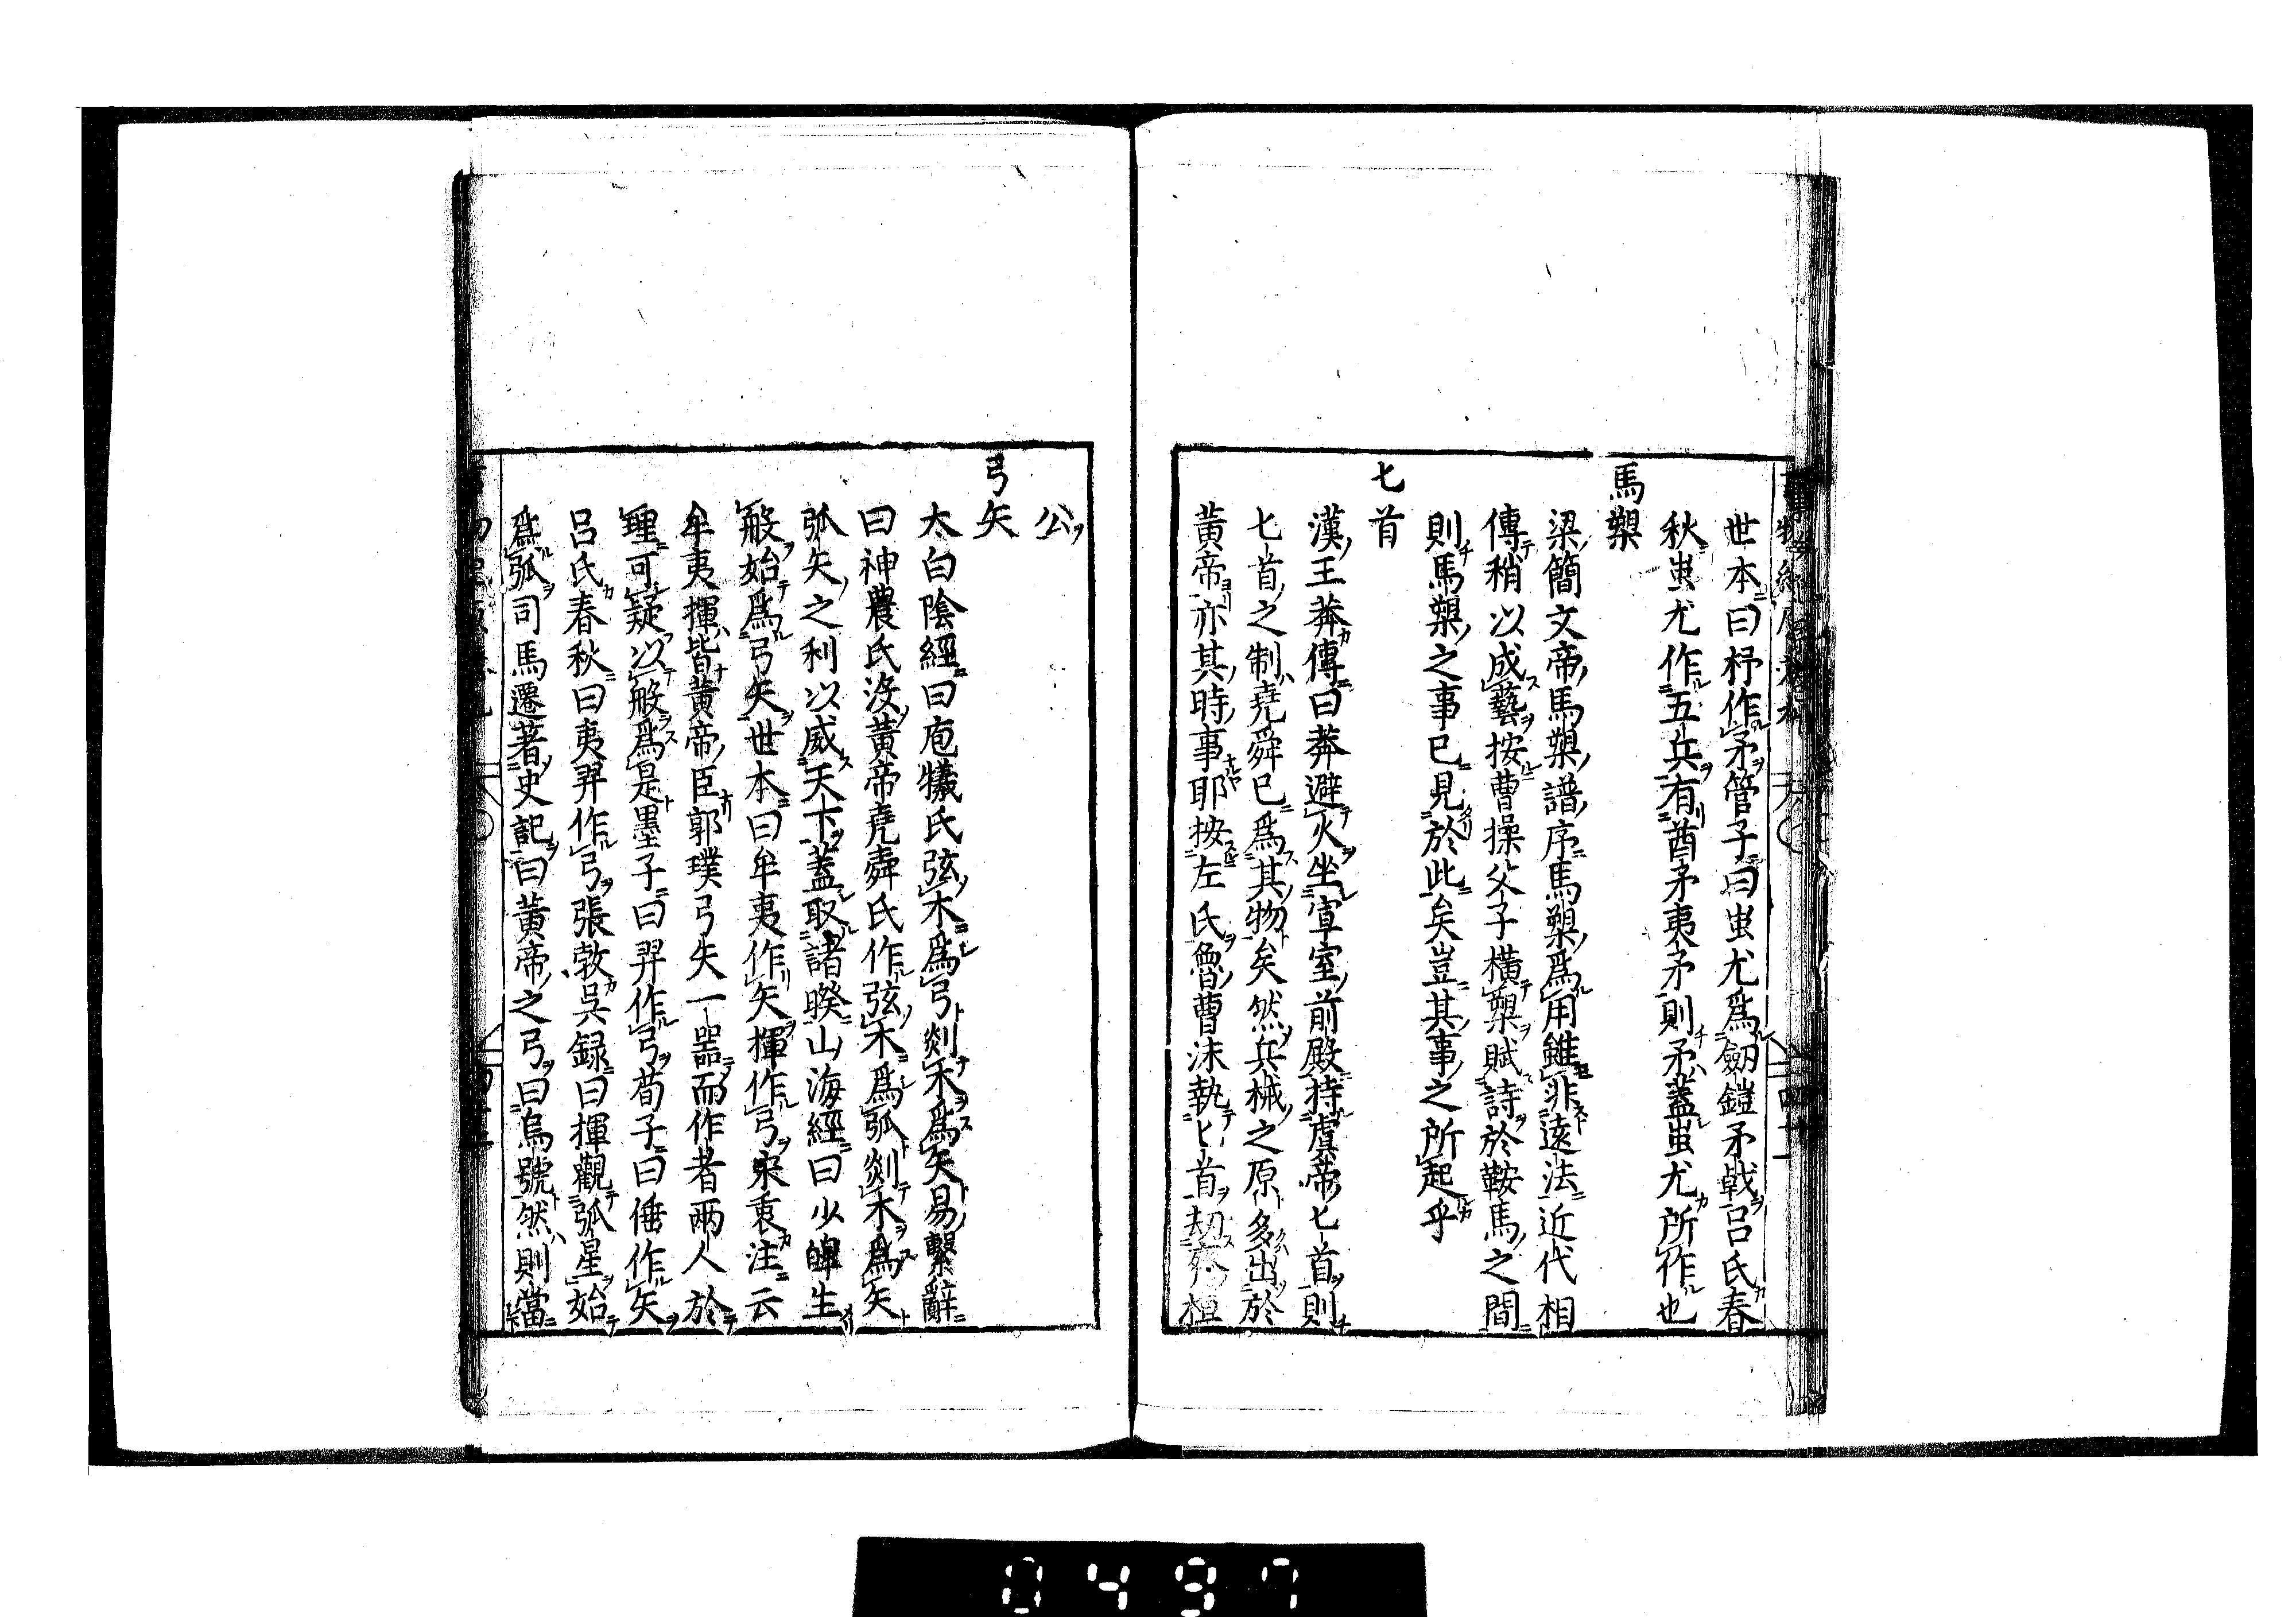 世本曰杼作矛管子曰蚩尤爲劒鎧矛戟呂氏春
秋蚩尤作五兵有酋矛夷矛則矛蓋蚩尤所作也
馬槊
梁簡文帝馬槊譜序馬槊爲用雖非遠法近代相
傳稍以成藝按曹操父子橫槊賦詩於鞍馬之間
則馬槊之事已見於此矣豈其事之所起乎
匕首
漢王莽傳曰莽避火坐宣室前殿持虞帝匕首則
匕首之制堯舜已爲其物矣然兵械之原多出於
黃帝亦其時事耶按左氏魯曹沫執匕首劫齊桓
公
弓矢
太白陰經曰庖犧氏弦木爲弓剡木爲矢易繫辭
曰神農氏沒黃帝堯舜氏作弦木爲弧剡木爲矢
弧矢之利以威天下蓋取諸睽山海經曰少皞生
般始爲弓矢世本曰牟夷作矢揮作弓宋衷注云
牟夷揮皆黃帝臣郭璞弓矢一噐而作者兩人於
理可疑以般爲是墨子曰羿作弓荀子曰倕作矢
呂氏春秋曰夷羿作弓張敦吳録曰揮觀弧星始
爲弧司馬遷著史記曰黃帝之弓曰烏號然則當
0497